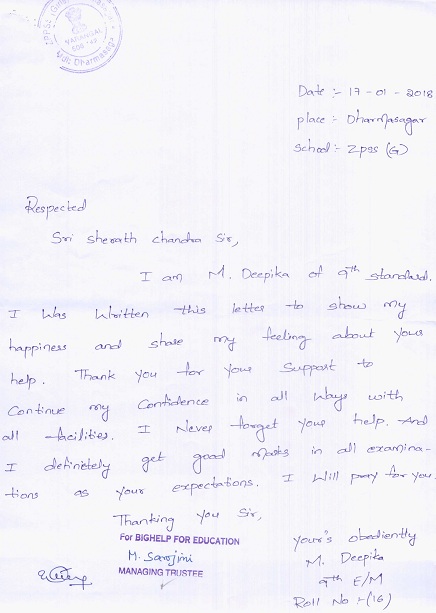 WARANGAL
Date :- 17 - 01 - 2018
place :- Dharmasagar
School :- Zpss (G)
Respected
Sri sherath chandra Sir,
I am M. Deepika of 9th standard.
I was written this letter to show my
happiness and share my feeling about your
help. Thank you for your Support to
Continue my Confidence in all ways with
all facilities. I Never forget your help. And
I definitely get good marks in all examina-
tions as your expectations. I will pray for you.
Thanking you Sir,
For BIGHELP FOR EDUCATION
M. Sarojini
MANAGING TRUSTEE
your's obediently
M. Deepika
9th E/M
Roll No :- (16)